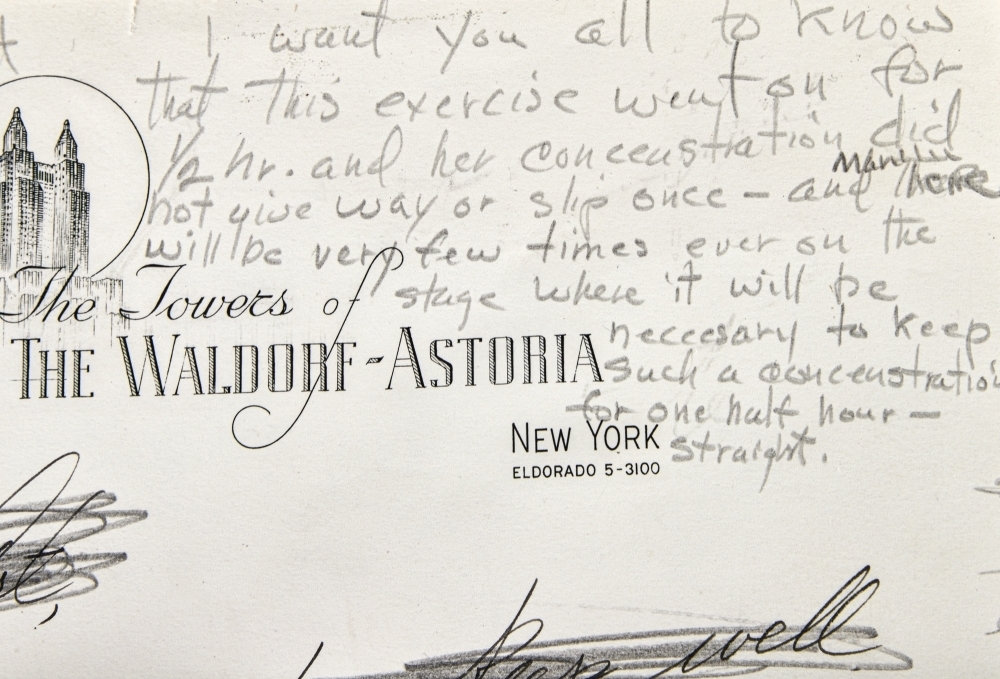 I want you all to know
that this exercise went on for
1/2 hr. and her conceenstration did
not give way or slip once – and there
will be very few times ever on the
stage where it will be
neccesary to keep
such a conceenstration
for one half hour –
straight.
The Towers of
THE WALDORF-ASTORIA
NEW YORK
ELDORADO 5-3100
keep well